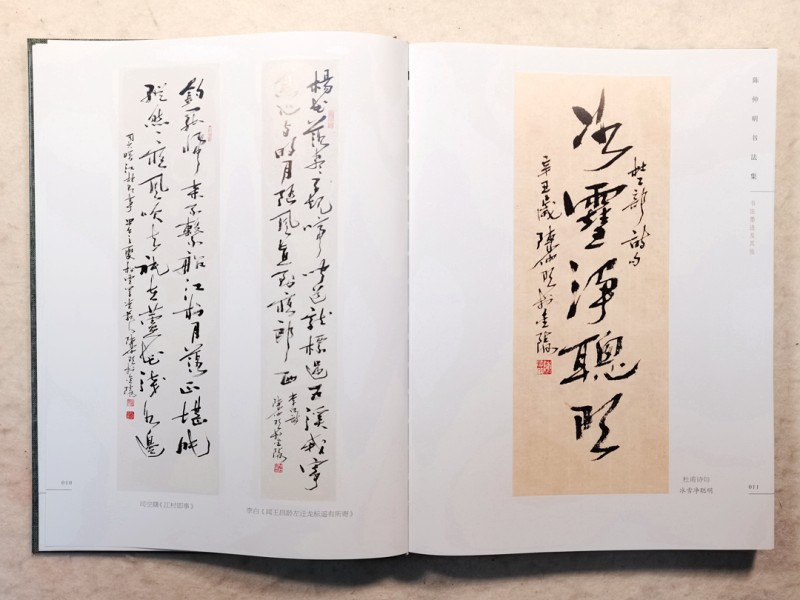 釣罷歸來不繫船江村月落正堪眠
縱然一夜風吹去祇在蘆花淺水邊
010
司空曙《江村即事》
楊花落盡子規啼聞道龍標過五溪我寄
愁心與明月隨風直到夜郎西
李白詩
陳仲明於金陵
李白《闻王昌龄左迁龙标遥有此寄》
杜工部詩句
冰雪淨聰明
辛丑歲陳仲明於金陵
杜甫诗句
冰雪净聪明
陈仲明书法集
011